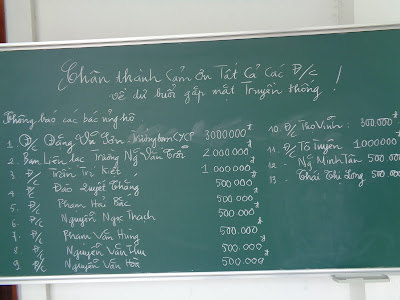 Chân thành Cảm ơn Tất Cả Các Đ/c
về dự buổi gặp mặt Truyền thống !
Thông báo các bác ủng hộ
1. Đ/c Đặng Văn Sơn 3000000đ
2. Ban Liên lạc Trường Ng Văn Trỗi 2.000.000đ
3 Đ/c Trần Trí Kiệt 1.000.000đ
4. Đ/c Đào Quyết Thắng 500.000đ
5. Đ/c Phạm Hải Bắc 500.000đ
6. Đ/c Nguyễn Ngọc Thạch 500.000đ
7. Đ/c Phạm Văn Hùng 500.000đ
8 Đ/c Nguyễn Văn Thu 500.000đ
9 Đ/c Nguyễn Văn Hòa 500.000đ
10. Đ/c Thọ Vinh : 300.000đ
11. Đ/c Tô Tuyên 1000000đ
12 - Ng Minh Tân 500.000
13 - Thái Thị Long 500.000